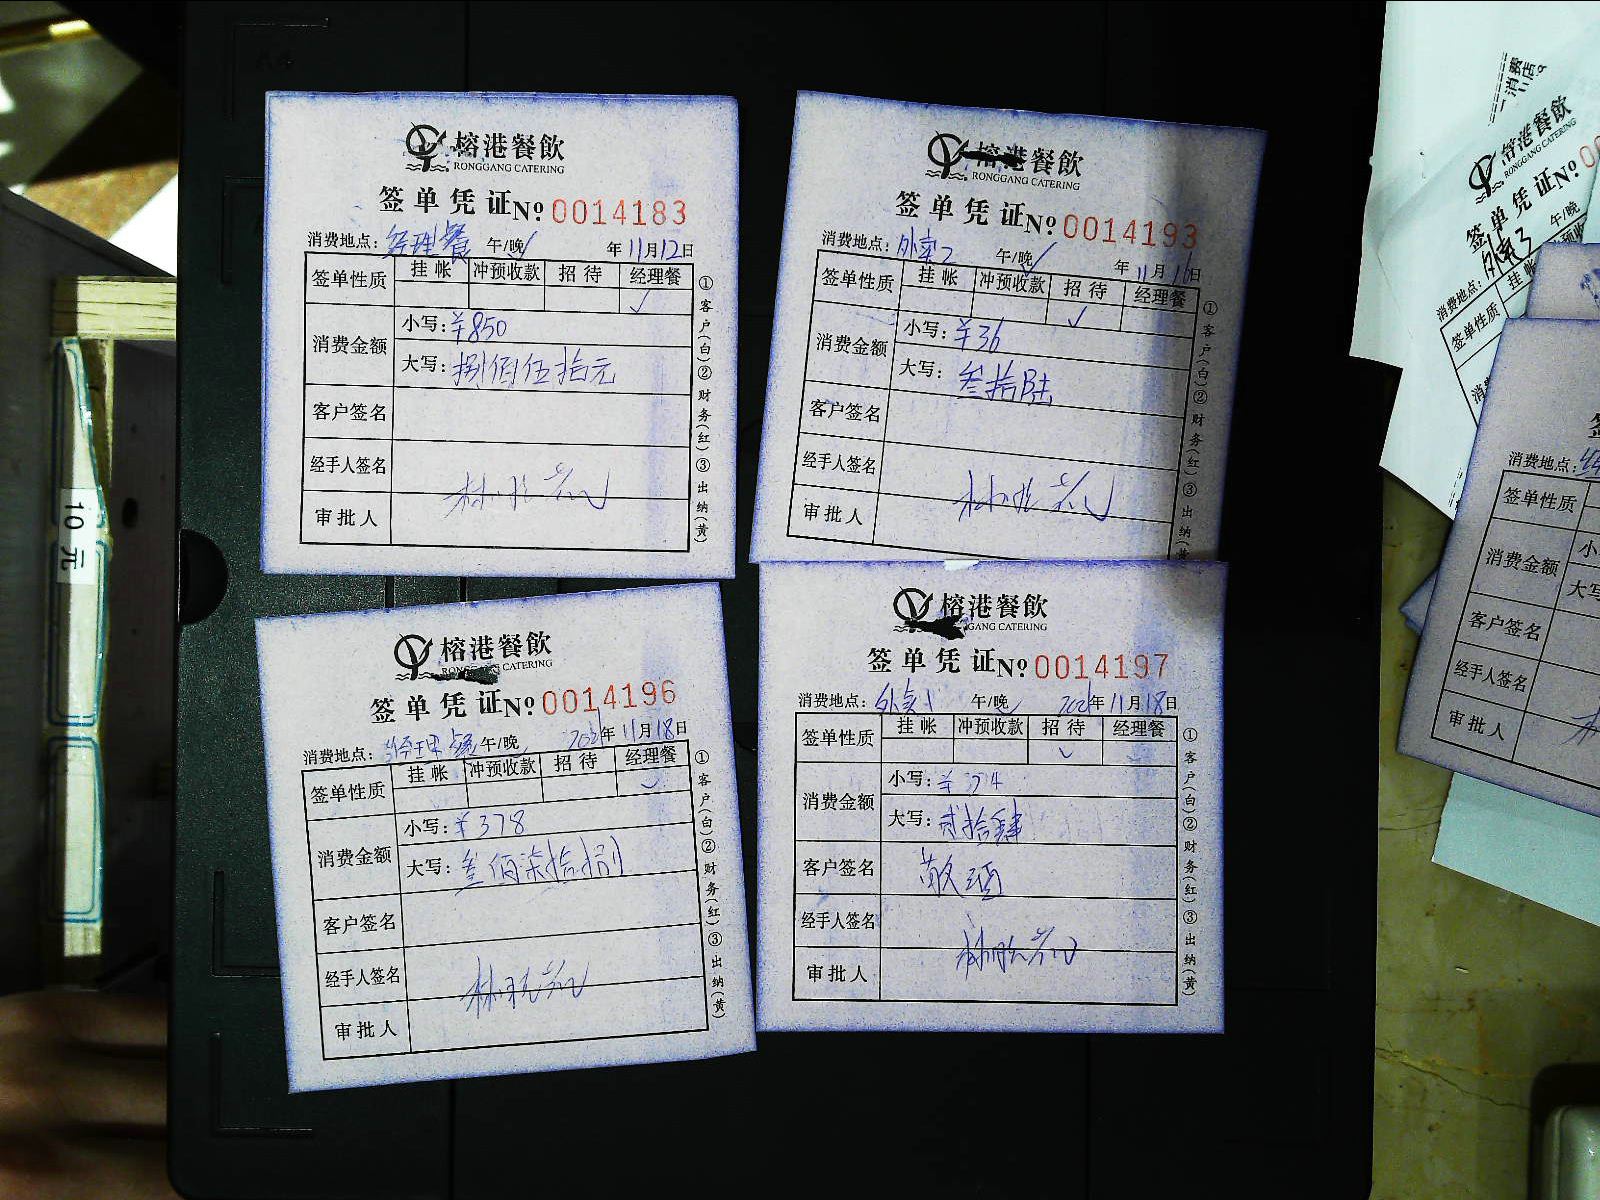 榕港餐飲
RONGGANG CATERING
签单凭证 № 0014183
消费地点：经理餐 午/晚✓ 年11月12日
签单性质 挂帐 冲预收款 招待 经理餐
✓
消费金额 小写：¥850
大写：捌佰伍拾元
客户签名
经手人签名
审批人
①客户(白)②财务(红)③出纳(黄)
榕港餐飲
RONGGANG CATERING
签单凭证 № 0014193
消费地点：外卖2 午/晚✓ 年11月16日
签单性质 挂帐 冲预收款 招待 经理餐
✓
消费金额 小写：¥36
大写：叁拾陆
客户签名
经手人签名
审批人
①客户(白)②财务(红)③出纳(黄)
榕港餐飲
CATERING
签单凭证 № 0014196
消费地点：经理餐 午/晚 2021年11月18日
签单性质 挂帐 冲预收款 招待 经理餐
✓
消费金额 小写：¥378
大写：叁佰柒拾捌
客户签名
经手人签名
审批人
①客户(白)②财务(红)③出纳(黄)
榕港餐飲
GANG CATERING
签单凭证 № 0014197
消费地点：外卖 午/晚 2021年11月18日
签单性质 挂帐 冲预收款 招待 经理餐
✓
消费金额 小写：¥
大写：贰拾肆
客户签名
经手人签名
审批人
①客户(白)②财务(红)③出纳(黄)
10元
榕港餐飲
RONGGANG CATERING
签单凭证 №
消费地点：外卖3 午/晚
签单性质
消费地点：
签单性质
消费金额
客户签名
经手人签名
审批人